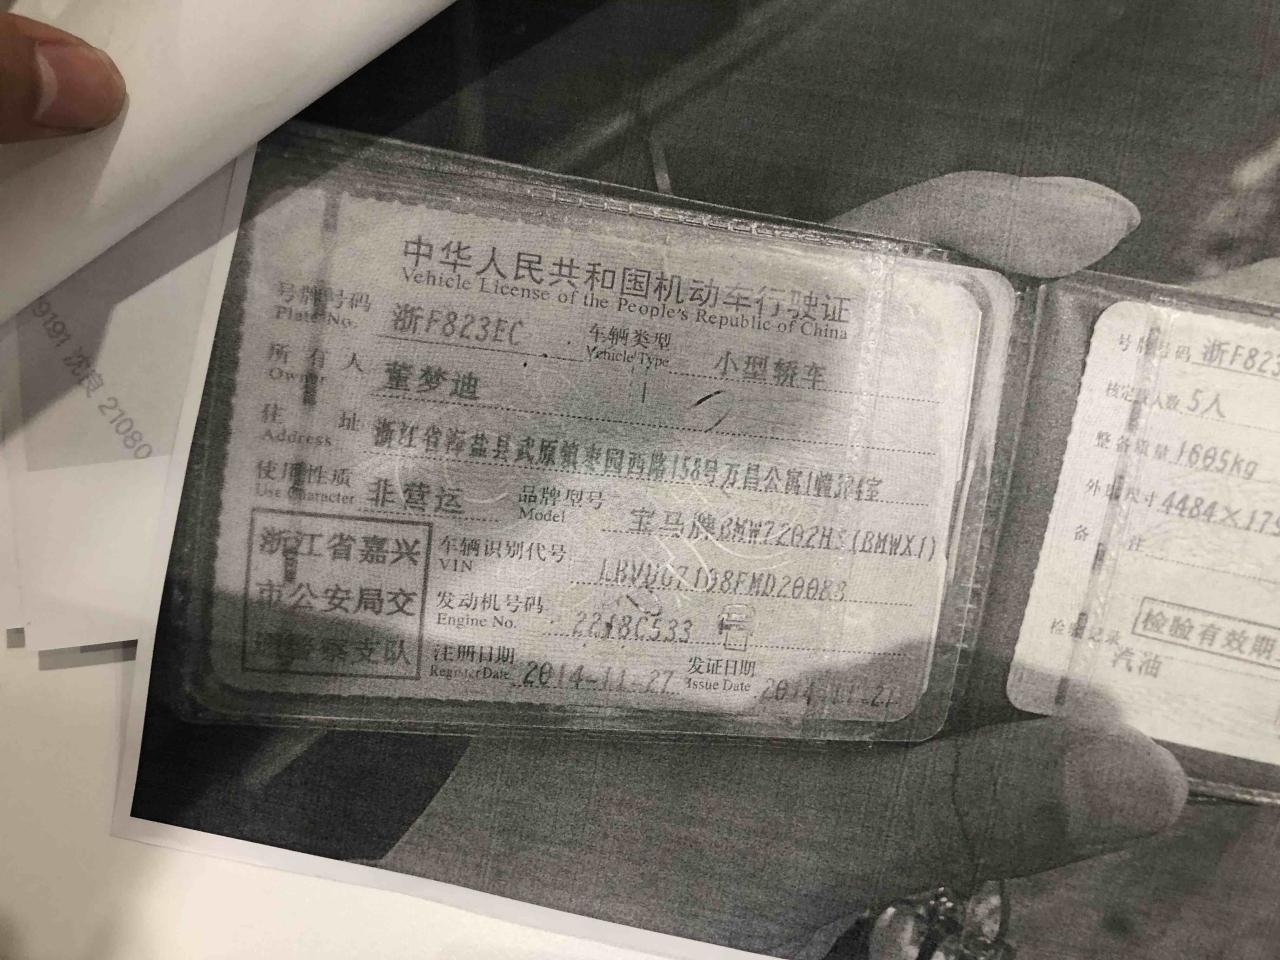 中华人民共和国机动车行驶证
Vehicle License of the People's Republic of China
号牌号码 浙F823EC 车辆类型 小型轿车
Plate No. Vehicle Type
所有人 董梦迪
Owner
住址 浙江省海盐县武原镇枣园西路158号万昌公寓1幢504室
Address
使用性质 非营运 品牌型号 宝马牌BMW7202HS(BMWX1)
Use Character Model
浙江省嘉兴
市公安局交
通警察支队
车辆识别代号
VIN
发动机号码
Engine No.
注册日期 2014-11-27 发证日期 2014-11-27
Register Date Issue Date
号牌号码 浙F823
核定载人数 5人
整备质量 1605kg
外廓尺寸 4484×175
备注
检验有效期
检验记录
汽油
沈良 21080